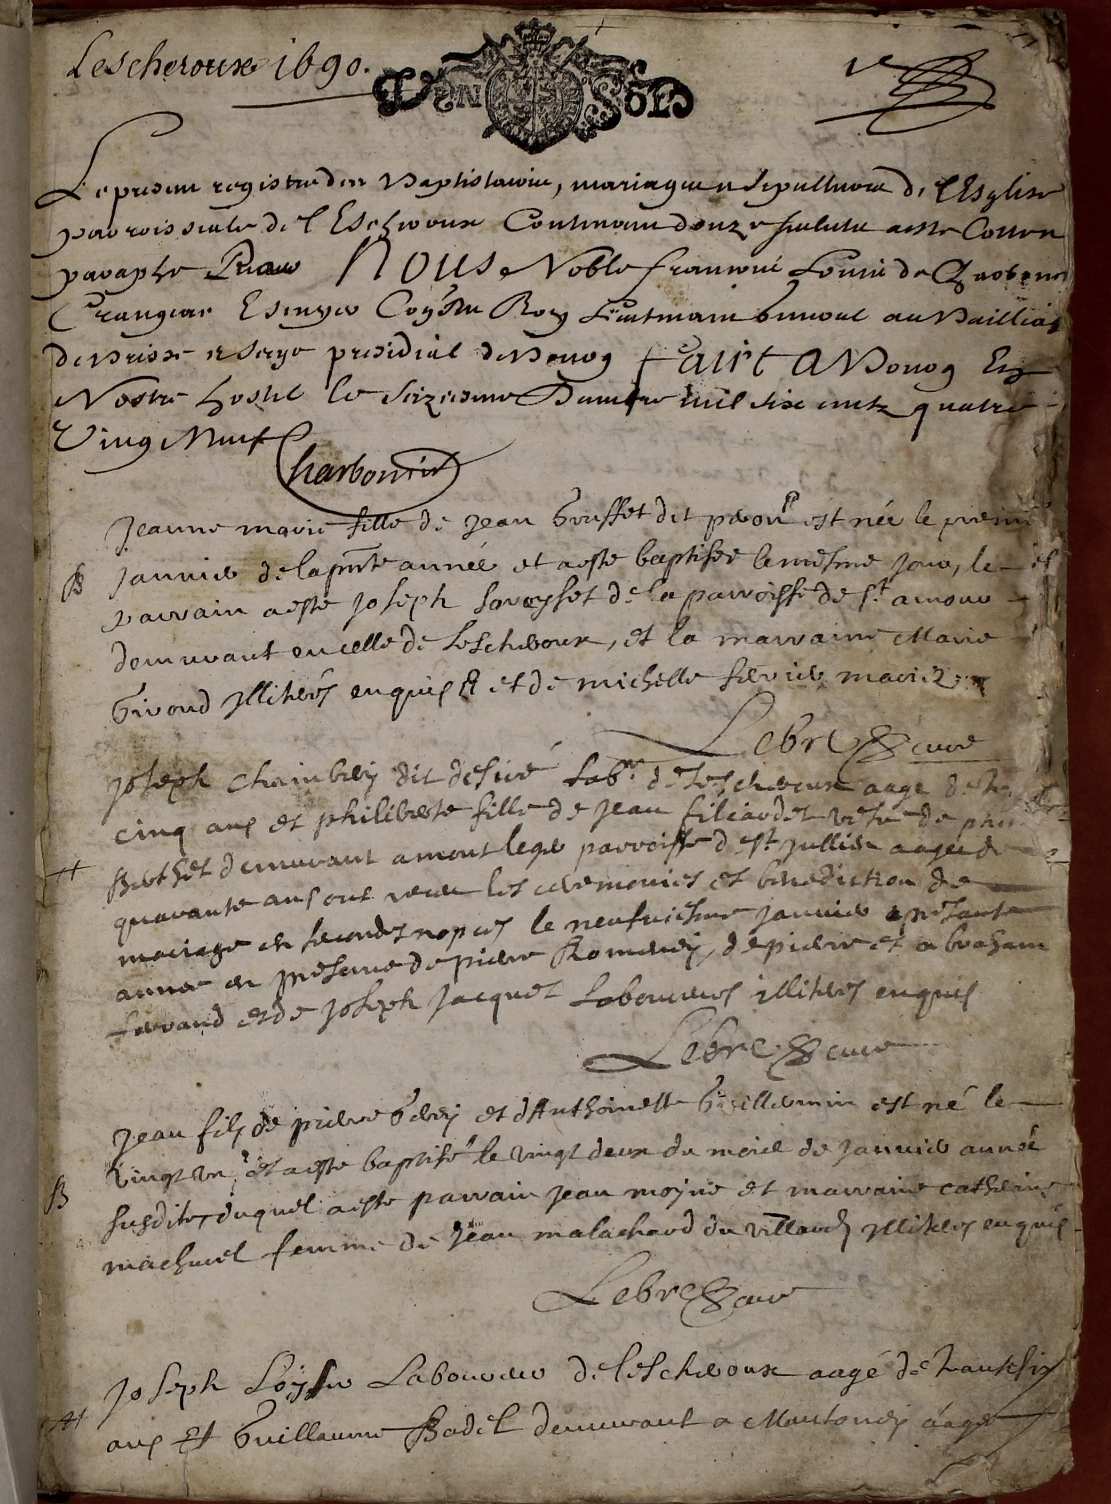 Lescheroux 1690.
UN SOL
Le present registre des Baptistaire, mariage et sepulture de l'Esglise
parroissiale de l'Escheroux Contenant douze feulets a este Cotté et
paraphe Par Nous Noble François Louis de Charbonnier
Crangeac Escuyer Con.er du Roy Lieutenant General au Bailliage
de Bresse et siege presidial de Bourg Fait A Bourg En
Nostre hostel le seizieme Decembre mil six cents quatre
Vingt Neuf
Charbonnier
Jeanne marie fille de Jean Gouffet dit est née le premier
B Janvier de la pnte année et a esté baptisée le mesme jour, le
parrain a esté Joseph de la parroisse de St amour
demeurant en celle de Lescheroux, et la marraine Marie
Givord illiterés enquis et de michelle fevrier mariez
Lebre curé
Joseph Chambery dit desiré Lab.r de Lescheroux aagé de
cinq ans et philiberte fille de Jean filiardet vefve de
Berthet demeurant a montleger parroisse de st Jullien aagée de
quarante ans ont receu les ceremonies et benediction de
mariage en secondes nopces le neufviesme Janvier presante
annee en presence de pierre Romeney, de pierre et abraham
ferrand et de Joseph Jacquet Laboureurs illiterés enquis
Lebre curé
Jean fils de pierre Gerey et d'Anthoinette Guillermin est né le
B vingt un, et a esté baptisé le vingt deux du mois de Janvier année
susdite, duquel a esté parrain Jean moyne et marraine catherine
machurel femme de Jean malachard du villard illiterés enquis
Lebre curé
Joseph Laboureur de Lescheroux aagé de trante six
ans Et Guillaume Badel demeurant a aagé